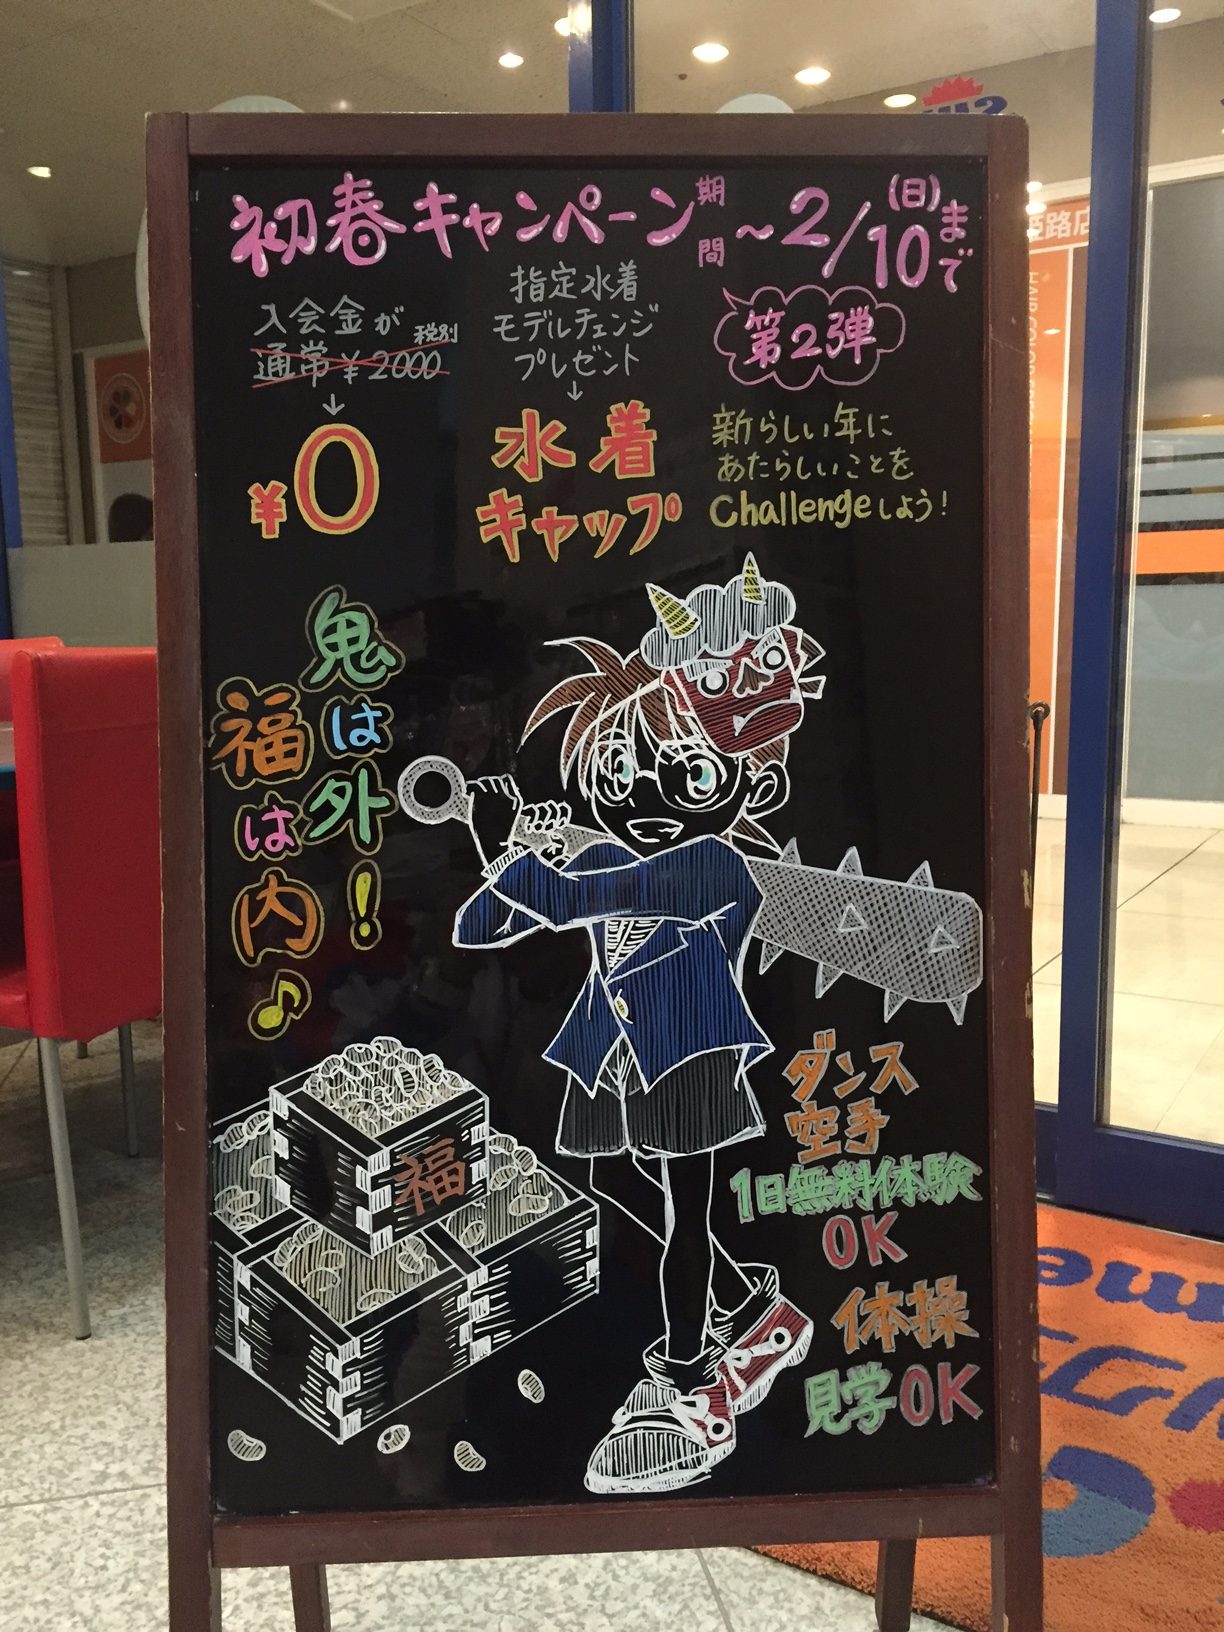 初春キャンペーン
期間
～2/10(日)まで
入会金が
通常¥2000
税別
↓
¥0
指定水着
モデルチェンジ
プレゼント
↓
水着
キャップ
第2弾
新らしい年に
あたらしいことを
Challengeしよう!
鬼は外!
福は内♪
福
ダンス
空手
1日無料体験
OK
体操
見学OK
路店